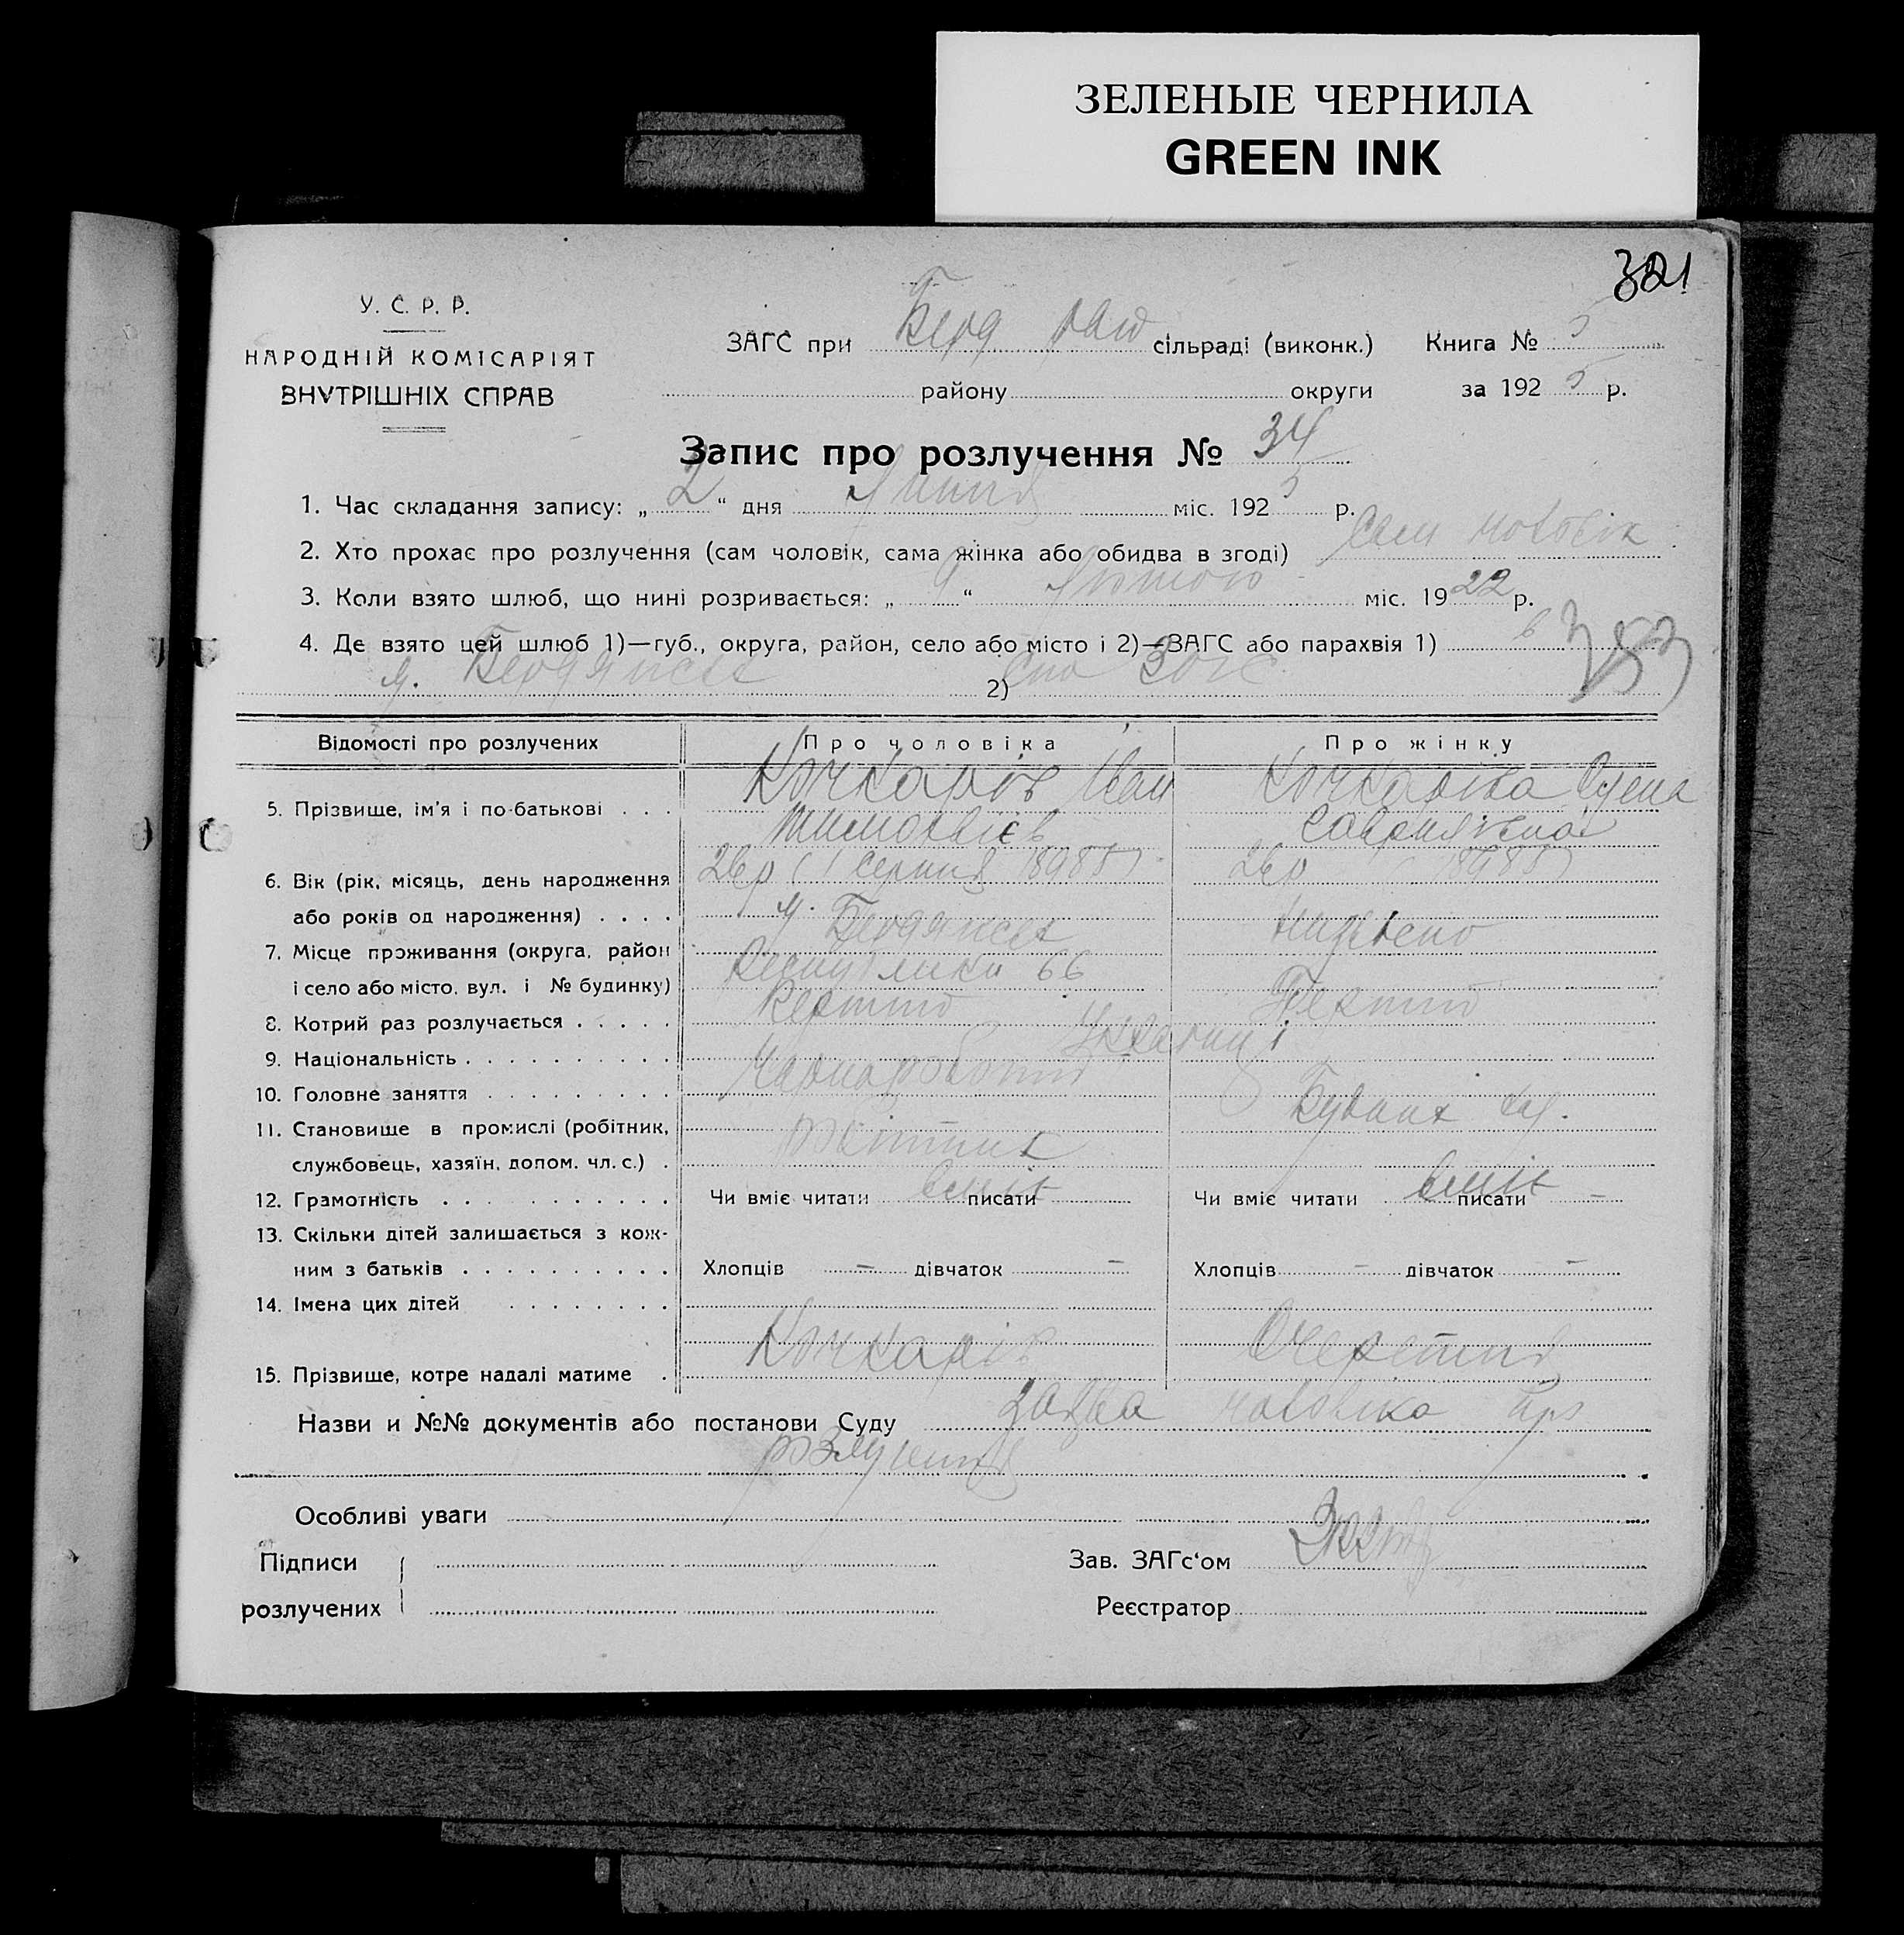 ЗЕЛЕНЫЕ ЧЕРНИЛА
GREEN INK
321
У. С. Р. Р.
НАРОДНІЙ КОМІСАРІЯТ
ВНУТРІШНІХ СПРАВ
ЗАГС при Берд сільраді (виконк.) Книга № 5
району округи за 192 5 р.
Запис про розлучення № 34
1. Час складання запису: „ 2 “ дня Липня міс. 192 5 р.
2. Хто прохає про розлучення (сам чоловік, сама жінка або обидва в згоді) Сам чоловік
3. Коли взято шлюб, що нині розривається: „ 9 “ Лютого міс. 19 22 р.
4. Де взято цей шлюб 1)—губ., округа, район, село або місто і 2)—ЗАГС або парахвія 1) в
353
м. Бердянськ 2) Загс
Відомості про розлучених Про чоловіка Про жінку
5. Прізвище, ім'я і по-батькові . . . Кочкарів Іван Кочкаріва
6. Вік (рік, місяць, день народження 26 р (1 Серпня 1898 р) 26 р 1898 р)
або років од народження) . . . . м. Бердянськ
7. Місце проживання (округа, район
і село або місто, вул. і № будинку) Республики 66
8. Котрий раз розлучається . . . . . Перший Перший
9. Національність . . . . . . . . . . Українці
10. Головне заняття . . . . . . . . . Чорноробочий
11. Становище в промислі (робітник,
службовець, хазяїн, допом. чл. с.) . робітник
12. Грамотність . . . . . . . . . . . Чи вміє читати вміє писати Чи вміє читати вміє писати –
13. Скільки дітей залишається з кож-
ним з батьків . . . . . . . . . . Хлопців – дівчаток – Хлопців – дівчаток –
14. Імена цих дітей . . . . . . . .
15. Прізвище, котре надалі матиме . Кочкарів
Назви и №№ документів або постанови Суду заява чоловіка про
розлучення
Особливі уваги
Підписи Зав. ЗАГс‘ом
розлучених Реєстратор